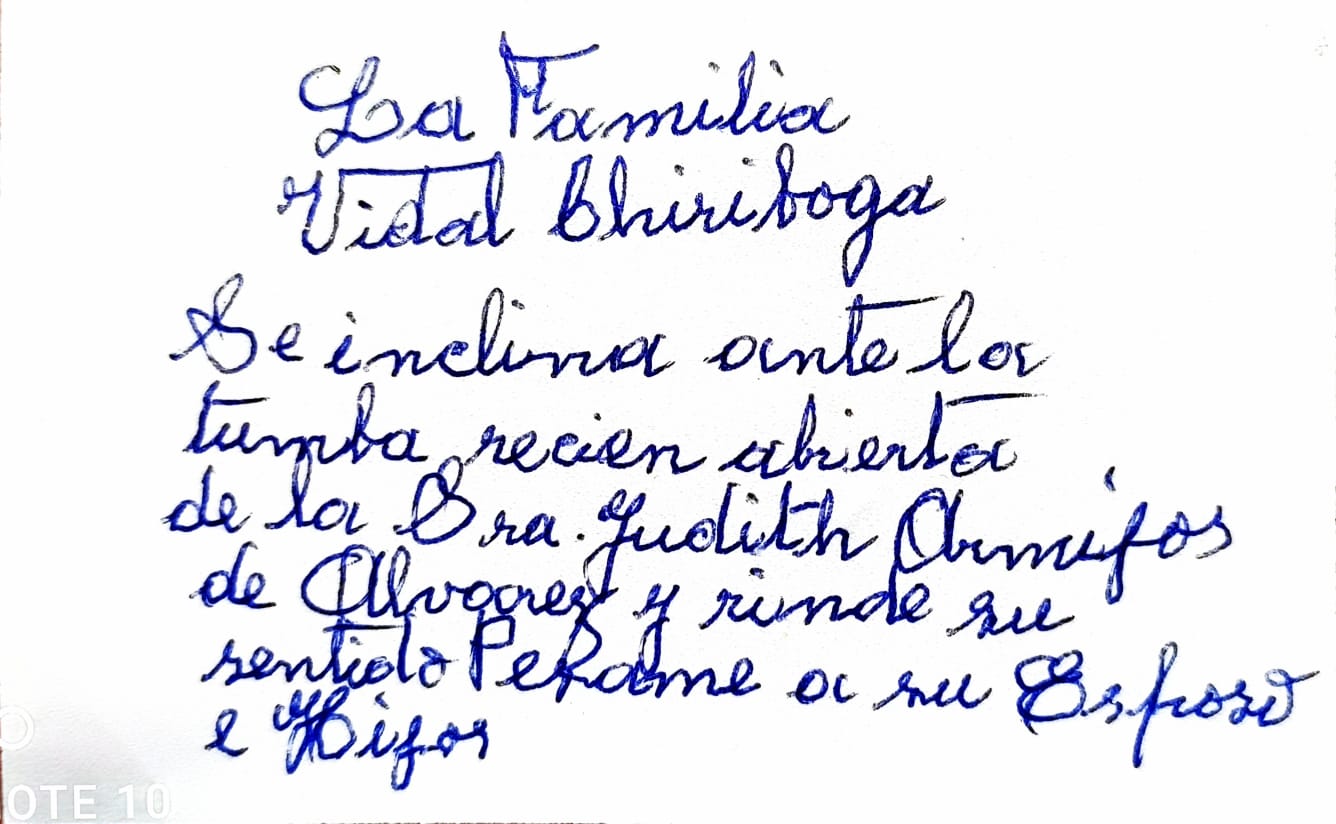 La Familia
Vidal Chiriboga
Se inclina ante la
tumba recien abierta
de la Sra. Judith Armijos
de Alvarez y rinde su
sentido Pesame a su Esposo
e Hijos
OTE 10